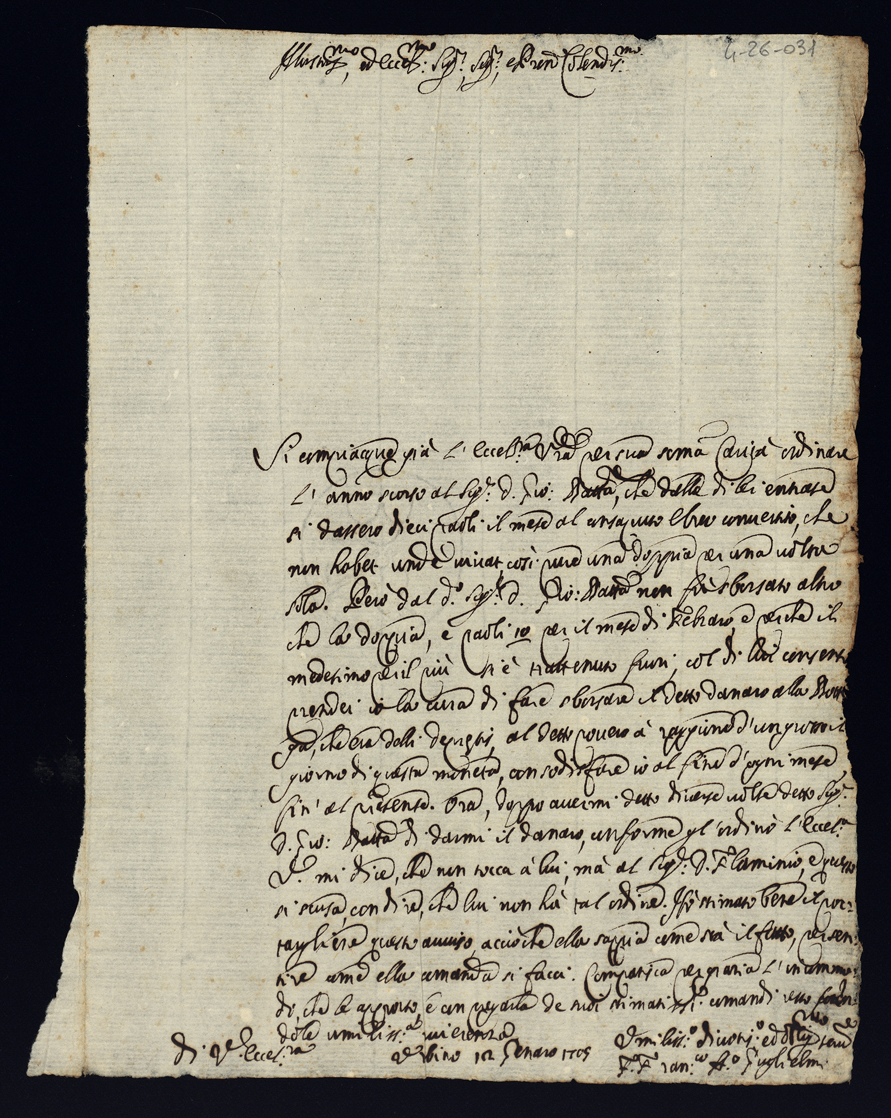 4-26-031
Illustmo, ed Eccmo: Sigr, Sigr, e Pron Colendismo:
Si compiacque già l'Eccelsa Vra per sua somma carità ordinare
l'anno scorso al Sigr. D. Gio: Batta, che dalle di lei entrate
si dassero dieci paoli il mese al consaputo ebreo convertito, che
non habet unde vivat, così pure una doppia per una volta
sola. Però dal do. Sigr. D. Gio: Batta non fù sborsato altro
che la doppia, e paoli 10 per il mese di Febraro, e perche il
medesimo per il più si è trattenuto fuori, col di lui consenso
presi io la cura di fare sborsare il detto danaro alla
che era delli al detto povero à raggione d'un grosso il
giorno di questa moneta, con sodisfare io al fine d'ogni mese
sin' al presente. Ora, doppo avermi detto diverse volte detto Sigr.
D. Gio: Batta di darmi il danaro, conforme gl'ordinò l'Eccelsa
V. mi dice, che non tocca à lui, mà al Sigr. D. Flaminio, e questo
si scusa, con dire, che lui non hà tal ordine. Hò stimato bene il por-
targliene questo avviso acciòche ella sappia come stà il fatto, per sen-
tire come ella comanda si facci. Compatisca per grazia l'incommo-
do, che le apporto, e con pregarla de suoi stimatissi: comandi resto facen-
dole umilissa riverenza
Di V. Eccelsa
Urbino 12 Genaro 1705
Umilisso divotiso ed obligmo serve
F. Franco Ao Guglielmi